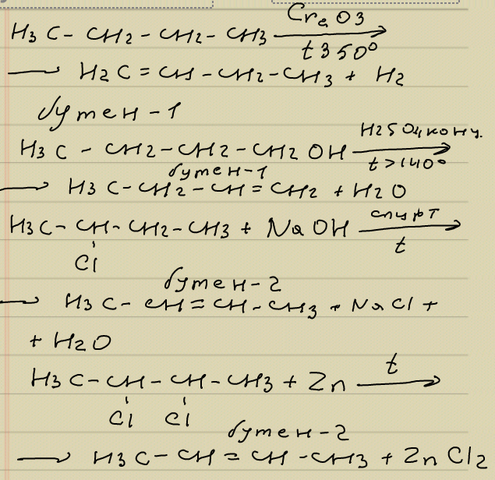 H3C-CH2-CH2-CH3 Cr2O3 t350°
→ H2C=CH-CH2-CH3 + H2
бутен-1
H3C-CH2-CH2-CH2OH H2SO4конц. t>140° →
бутен-1
→ H3C-CH2-CH=CH2 + H2O
H3C-CH-CH2-CH3 + NaOH спирт t →
Cl
бутен-2
→ H3C-CH=CH-CH3 + NaCl +
+ H2O
H3C-CH-CH-CH3 + Zn t →
Cl Cl
бутен-2
→ H3C-CH=CH-CH3 + ZnCl2